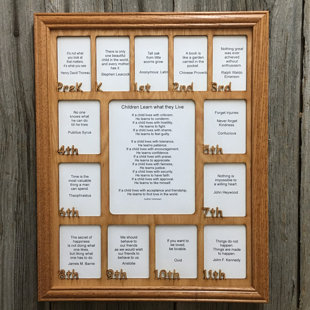 It's not what
you look at
that matters,
it's what
you see.
Henry David Thoreau
PreK
There is only
one beautiful
child in the world
and every mother
has it
Stephen Leacock
K
Tall oak
from little
acorns grow
Anonymous Latin
1st
A book is
like a garden
carried in the
pocket
Chinese Proverb
2nd
Nothing great
was ever
achieved
without
enthusiasm.
Ralph Waldo
Emerson
3rd
No one
knows what
he can do
till he tries
Publilius Syrus
4th
Children Learn what they Live
If a child lives with criticism,
He learns to condemn.
If a child lives with hostility,
He learns to fight.
If a child lives with shame,
He learns to feel guilty.
If a child lives with tolerance,
He learns patience.
If a child lives with encouragement,
He learns confidence.
If a child lives with praise,
He learns to appreciate.
If a child lives with fairness,
He learns justice.
If a child lives with security,
He learns to have faith.
If a child lives with approval,
He learns to like himself.
If a child lives with acceptance and friendship,
He learns to find love in the world.
Forget injuries.
Never forget
Kindness.
Confucious
5th
Time is the
most valuable
thing a man
can spend
Theophrastus
6th
Nothing is
impossible to
a willing heart.
John Heywood
7th
The secret of
happiness
is not doing what
one likes,
but liking what
one has to do
James M. Barrie
8th
We should
behave to
our friends
as we would wish
our friends
to behave to us
Aristotle
9th
If you want
to be loved,
be lovable
Ovid
10th
Things do not
happen
Things are
made to
happen
John F. Kennedy
11th